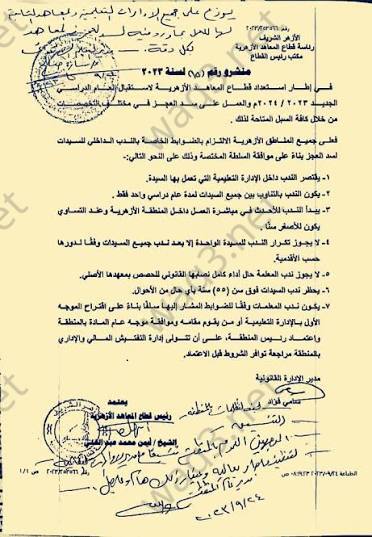 يوزع على جميع الإدارات التعليمية والمعاهد
الأزهر الشريف
رئاسة قطاع المعاهد الأزهرية
مكتب رئيس القطاع
منشور رقم (١٥) لسنة ٢٠٢٣
في إطار استعداد قطاع المعاهد الأزهرية لاستقبال العام الدراسي
الجديد ٢٠٢٣ / ٢٠٢٤م والعمل على سد العجز في مختلف التخصصات
من خلال كافة السبل المتاحة لذلك.
فعلى جميع المناطق الأزهرية الالتزام بالضوابط الخاصة بالندب الداخلي للسيدات
لسد العجز بناءً على موافقة السلطة المختصة وذلك على النحو التالي:-
١- يقتصر الندب داخل الإدارة التعليمية التي تعمل بها السيدة.
٢- يكون الندب بالتناوب بين جميع السيدات لمدة عام دراسي واحد فقط.
٣- يبدأ الندب للأحدث في مباشرة العمل داخل المنطقة الأزهرية وعند التساوي
يكون للأصغر سنًا.
٤- لا يجوز تكرار الندب للسيدة الواحدة إلا بعد ندب جميع السيدات وفقًا لدورها
حسب الأقدمية.
٥- لا يجوز ندب المعلمة حال أداء كامل نصابها القانوني للحصص بمعهدها الأصلي.
٦- يحظر ندب السيدات فوق سن (٥٥) سنة بأي حال من الأحوال.
٧- يكون ندب المعلمات وفقًا للضوابط المشار إليها سلفًا بناءً على اقتراح الموجه
الأول بالإدارة التعليمية أو من يقوم مقامه وموافقة موجه عام المادة بالمنطقة
واعتماد رئيس المنطقة، على أن تتولى إدارة التفتيش المالي والإداري
بالمنطقة مراجعة توافر الشروط قبل الاعتماد.
مدير الإدارة القانونية
سامي فؤاد
يعتمد
رئيس قطاع المعاهد الأزهرية
الشيخ / أيمن محمد عبدالغني
٢٠٢٣/٩/٢٤
waqt3.net